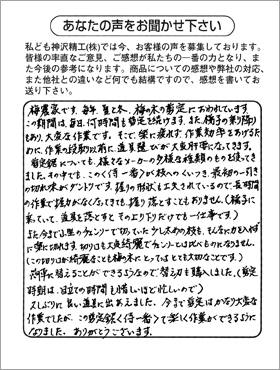 あなたの声をお聞かせ下さい
私ども神沢精工(株)では今、お客様の声を募集しております。
皆様の率直なご意見、ご感想が私たちの一番の力となり、また今後の参考になります。商品についての感想や弊社の対応、
また他社との違いなど何でも結構ですので、感想を書いてお送り下さい。
梅農家です。毎年、夏と冬、梅の木の剪定に追われています。
この時期は、毎日、何時間も剪定を続けます。また、梯子の乗り降り
もあり、大変な作業です。そこで、楽に疲れず、作業効率をあげるた
めに、作業の段取り以前に、道具選びが大変肝要になってきます。
剪定鋏についても、様々なメーカーの多種な種類のものを使ってき
ました。その中でも、このく侍一番>が枝へのくいつき、最初の一引き
の切れ味がダントツです。握りの形状も工夫されているので、長時間
の作業で握力がなくなってきても、握り落とすこともありません。(梯子に
乗っていて、道具を落とすと、その上り下りだけでも一仕事です)
また今まで小型のチェンソーで切っていた少し太めの枝も、そんなに力を入れず
に楽に切れます。切り口も大変綺麗でチェンソーとは比べものになりません。
(この切り口が綺麗なことも梅の木にとってはとても大切なことです。)
簡単に替えることができるようなので、替え刃も購入しました。(剪定
時期は、目立ての時間も惜しいほど忙しいので)
久しぶりに良い道具に出あえました。今まで剪定はかなり大変な
作業でしたが、この剪定鋸<侍一番>で楽しく作業ができるように
なりました。ありがとうございます。